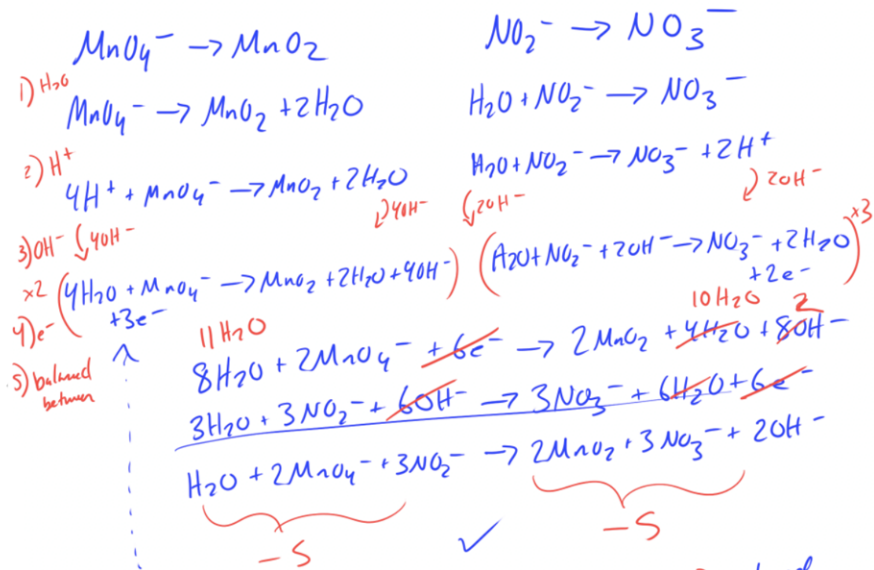 MnO₄⁻ → MnO₂
NO₂⁻ → NO₃⁻
1) H₂O
MnO₄⁻ → MnO₂ + 2H₂O
H₂O + NO₂⁻ → NO₃⁻
2) H⁺
4H⁺ + MnO₄⁻ → MnO₂ + 2H₂O
H₂O + NO₂⁻ → NO₃⁻ + 2H⁺
3) OH⁻ 4OH⁻
4OH⁻
2OH⁻
2OH⁻
x2 (4H₂O + MnO₄⁻ → MnO₂ + 2H₂O + 4OH⁻)
+3e⁻
(H₂O + NO₂⁻ + 2OH⁻ → NO₃⁻ + 2H₂O) x3
+2e⁻
4) e⁻
11H₂O
10H₂O 2
8H₂O + 2MnO₄⁻ + 6e⁻ → 2MnO₂ + 4H₂O + 8OH⁻
5) balanced
between
3H₂O + 3NO₂⁻ + 6OH⁻ → 3NO₃⁻ + 6H₂O + 6e⁻
H₂O + 2MnO₄⁻ + 3NO₂⁻ → 2MnO₂ + 3NO₃⁻ + 2OH⁻
-5 ✓ -5